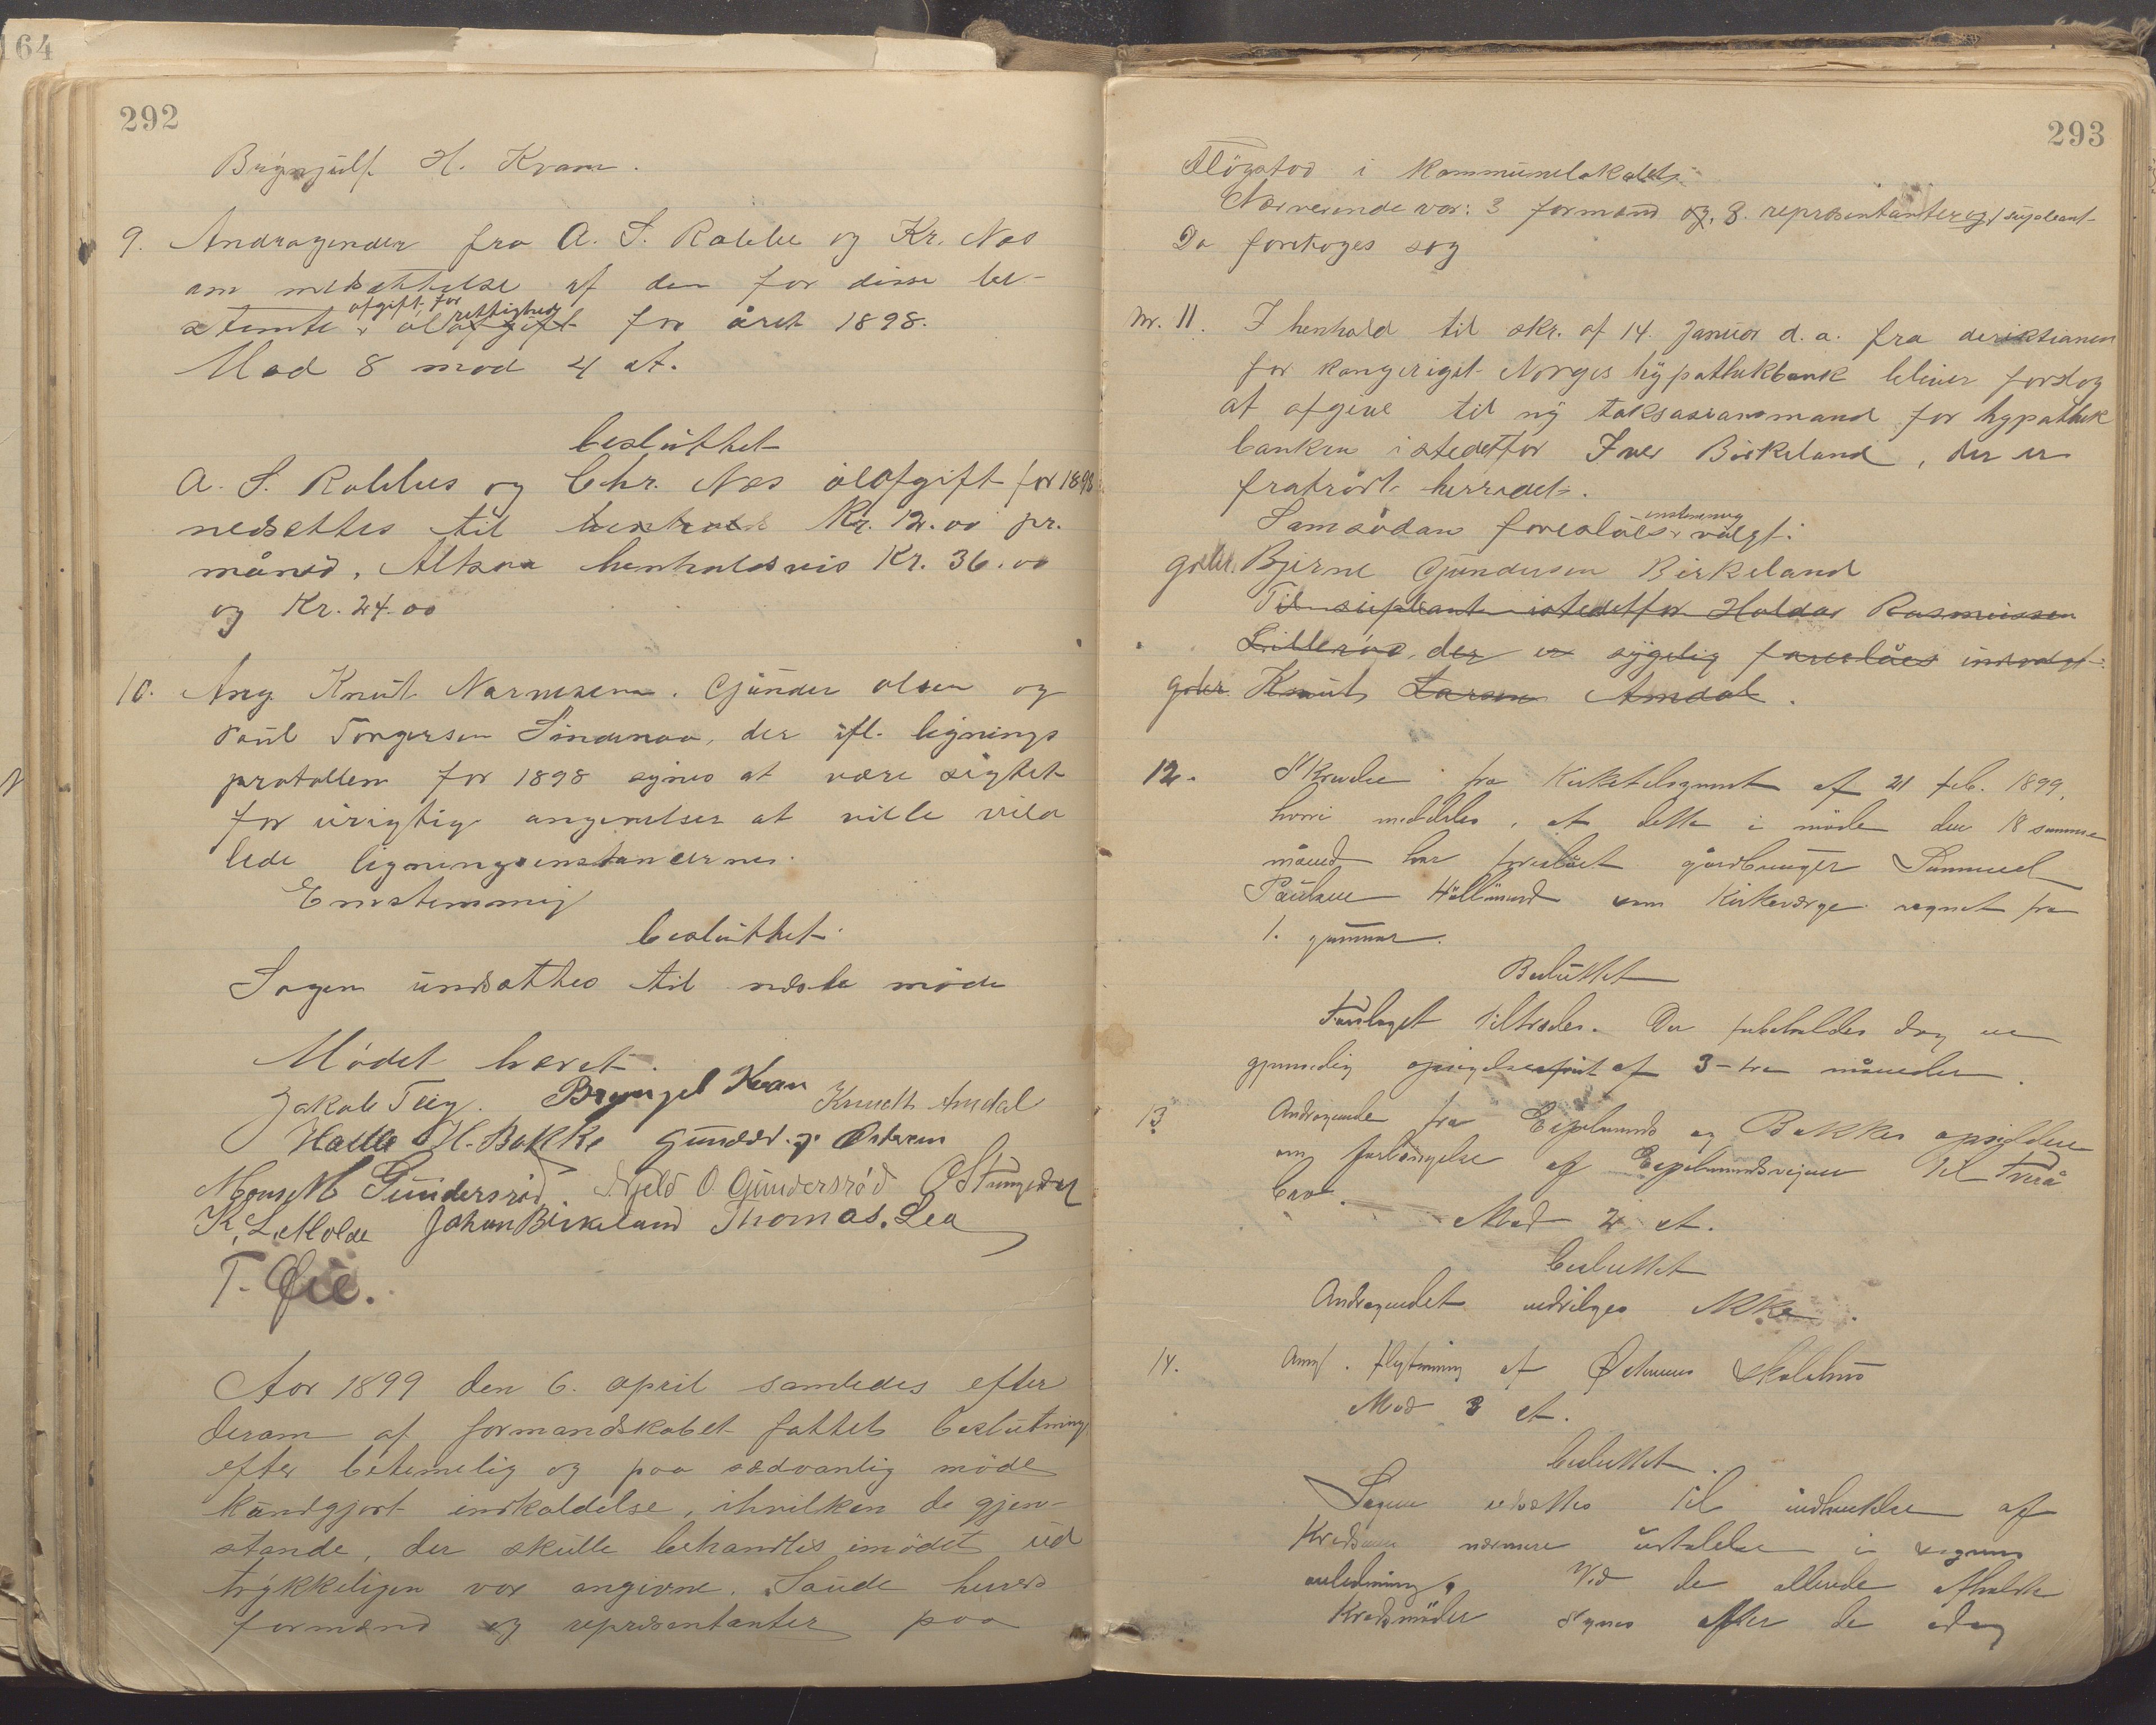 64
292
Brÿnjulf H. Kvam.
9. Andragender fra A. S. Rabbe og Kr. Næs
om nedsættelse af den for disse be-
stemte afgift for ølafgift rettighed for året 1898.
Mod 8 mod 4 st.
beslüttet
A. S. Rabbes og Chr. Næs ølafgift for 1898
nedsættes til Kr. 12.00 pr.
måned, Altsaa henholdsvis Kr. 36.00
og Kr. 24.00
10. Ang. Knüt Günder Olsen og
Poül Torgersen der ifl. lignings
protokollen for 1898 synes at være sigtet
for ürigtig angivelser at ville vild
lede ligningsinstancernes.
Enstemmig
beslüttet:
Sagen üdsættes til næste møde
Mødet hævet.
Jakob Teig. Bryngel Kvam Knudt Amdal
Halle H. Bakke Günder P. Østerem
Mons M Gündersrød. Njeld O. Gündersrød
K. L. Molde Johan Birkeland Thomas. Lea
T. Øie.
Aar 1899 den 6. april samledes efter
derom af formandskabet fattet beslütning
efter betimelig og paa sædvanlig måde
kündgjort indkaldelse, ihvilken de gjen-
stande, der skülle behandles imødet üd
trÿkkeligen var angivne. Saüde herreds
formænd og repræsentanter paa
293
Fløgstad i kommünelokalet.
Nærverende var: 3 formænd og 8 repræsentanter og 1 süpleant.
Da foretoges sag
Nr. 11. I henhold til skr. af 14. Janüar d. a. fra direktionen
for kongeriget Norges hÿpothekbank bliver forslag
at afgive til nÿ taksasionsmand for hypothek
banken istedetfor Iver Birkeland, der er
frafløtt herredet.
Som sådan foreslåes enstemmig valgt:
gårbr. Bjerne Gündersen Birkeland
Til süpleant istedetfor Haldor Rasmüssen
Lillerød, der er sÿgelig foreslåes indvalgt:
gårbr. Knüt Larsen Amdal.
12. Skrivelse fra Kirketilsynet af 21 feb. 1899,
hvori meddeles, at dette i møde den 18 samme
måned har foreslået gårdbrüger Sammuel
Paülsen som Kirkeværge regnet fra
1. janüar.
Beslüttet
Forslaget tiltrædes. Der forbeholdes dog en
gjensidig opsigelsesfrist af 3-tre måneder.
13 Andragende fra Espelands og Bakkes opsiddere
om forlængelse af Espelandsvejen til
bro.
Mod 2 st.
beslüttet
Andragendet indvilges ikke.
14. Angl. flytning af Østerems Skolehüs
Mod 3 st.
beslüttet.
Sagen üdsættes til indhentelse af
Kredsens nærmere üdtalelse i sagens
anledning. Ved de allerede afholdte
Kredsmøder synes efter de idag